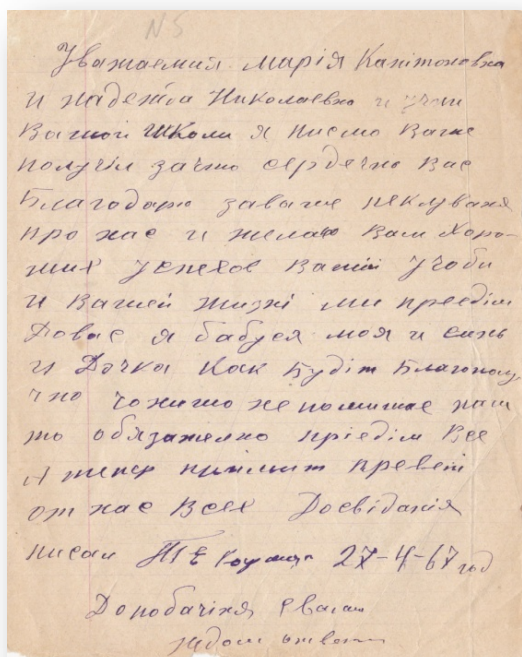 N 5
Уважаемия марія Капітоновна
и надежда Николаевна и учні
Вашой Школи я писмо Ваше
получіл зачто сердечно Вас
Благодорю заваше піклуваня
про нас и желаю Вам Хоро-
ших Успехов Вашій Учоби
и Вашей жизні ми приєдім
Довас я бабуся моя и синь
и Дочка Как Будіт Благополу
чно
то обязатилно приєдім Все
А тепер привет
от нас Всех Досвіданія
писал 27-4-67 год
Допобачіня